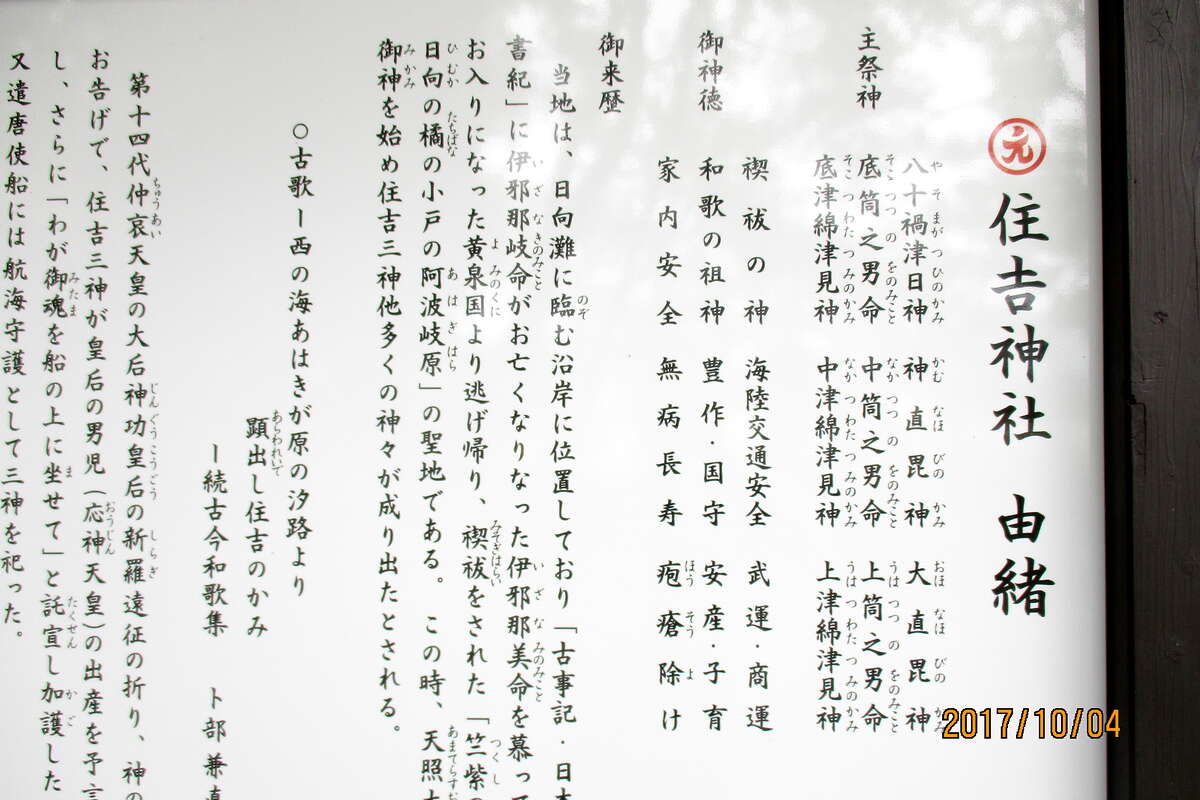 元 住吉神社 由緒
主祭神
八十禍津日神 神直毘神 大直毘神
底筒之男命 中筒之男命 上筒之男命
底津綿津見神 中津綿津見神 上津綿津見神
御神徳
禊祓の神 海陸交通安全 武運・商運
和歌の祖神 豊作・国守 安産・子育
家内安全 無病長寿 疱瘡除け
御来歴
当地は、日向灘に臨む沿岸に位置しており「古事記・日本
書紀」に伊邪那岐命がお亡くなりなった伊邪那美命を慕って
お入りになった黄泉国より逃げ帰り、禊祓をされた「竺紫の
日向の橘の小戸の阿波岐原」の聖地である。この時、天照
御神を始め住吉三神他多くの神々が成り出たとされる。
○古歌ー西の海あはきが原の汐路より
顕出し住吉のかみ
ー続古今和歌集 卜部兼直
第十四代仲哀天皇の大后神功皇后の新羅遠征の折り、神の
お告げで、住吉三神が皇后の男児(応神天皇)の出産を予言
し、さらに「わが御魂を船の上に坐せて」と託宣し加護した
又遣唐使船には航海守護として三神を祀った。
2017/10/04